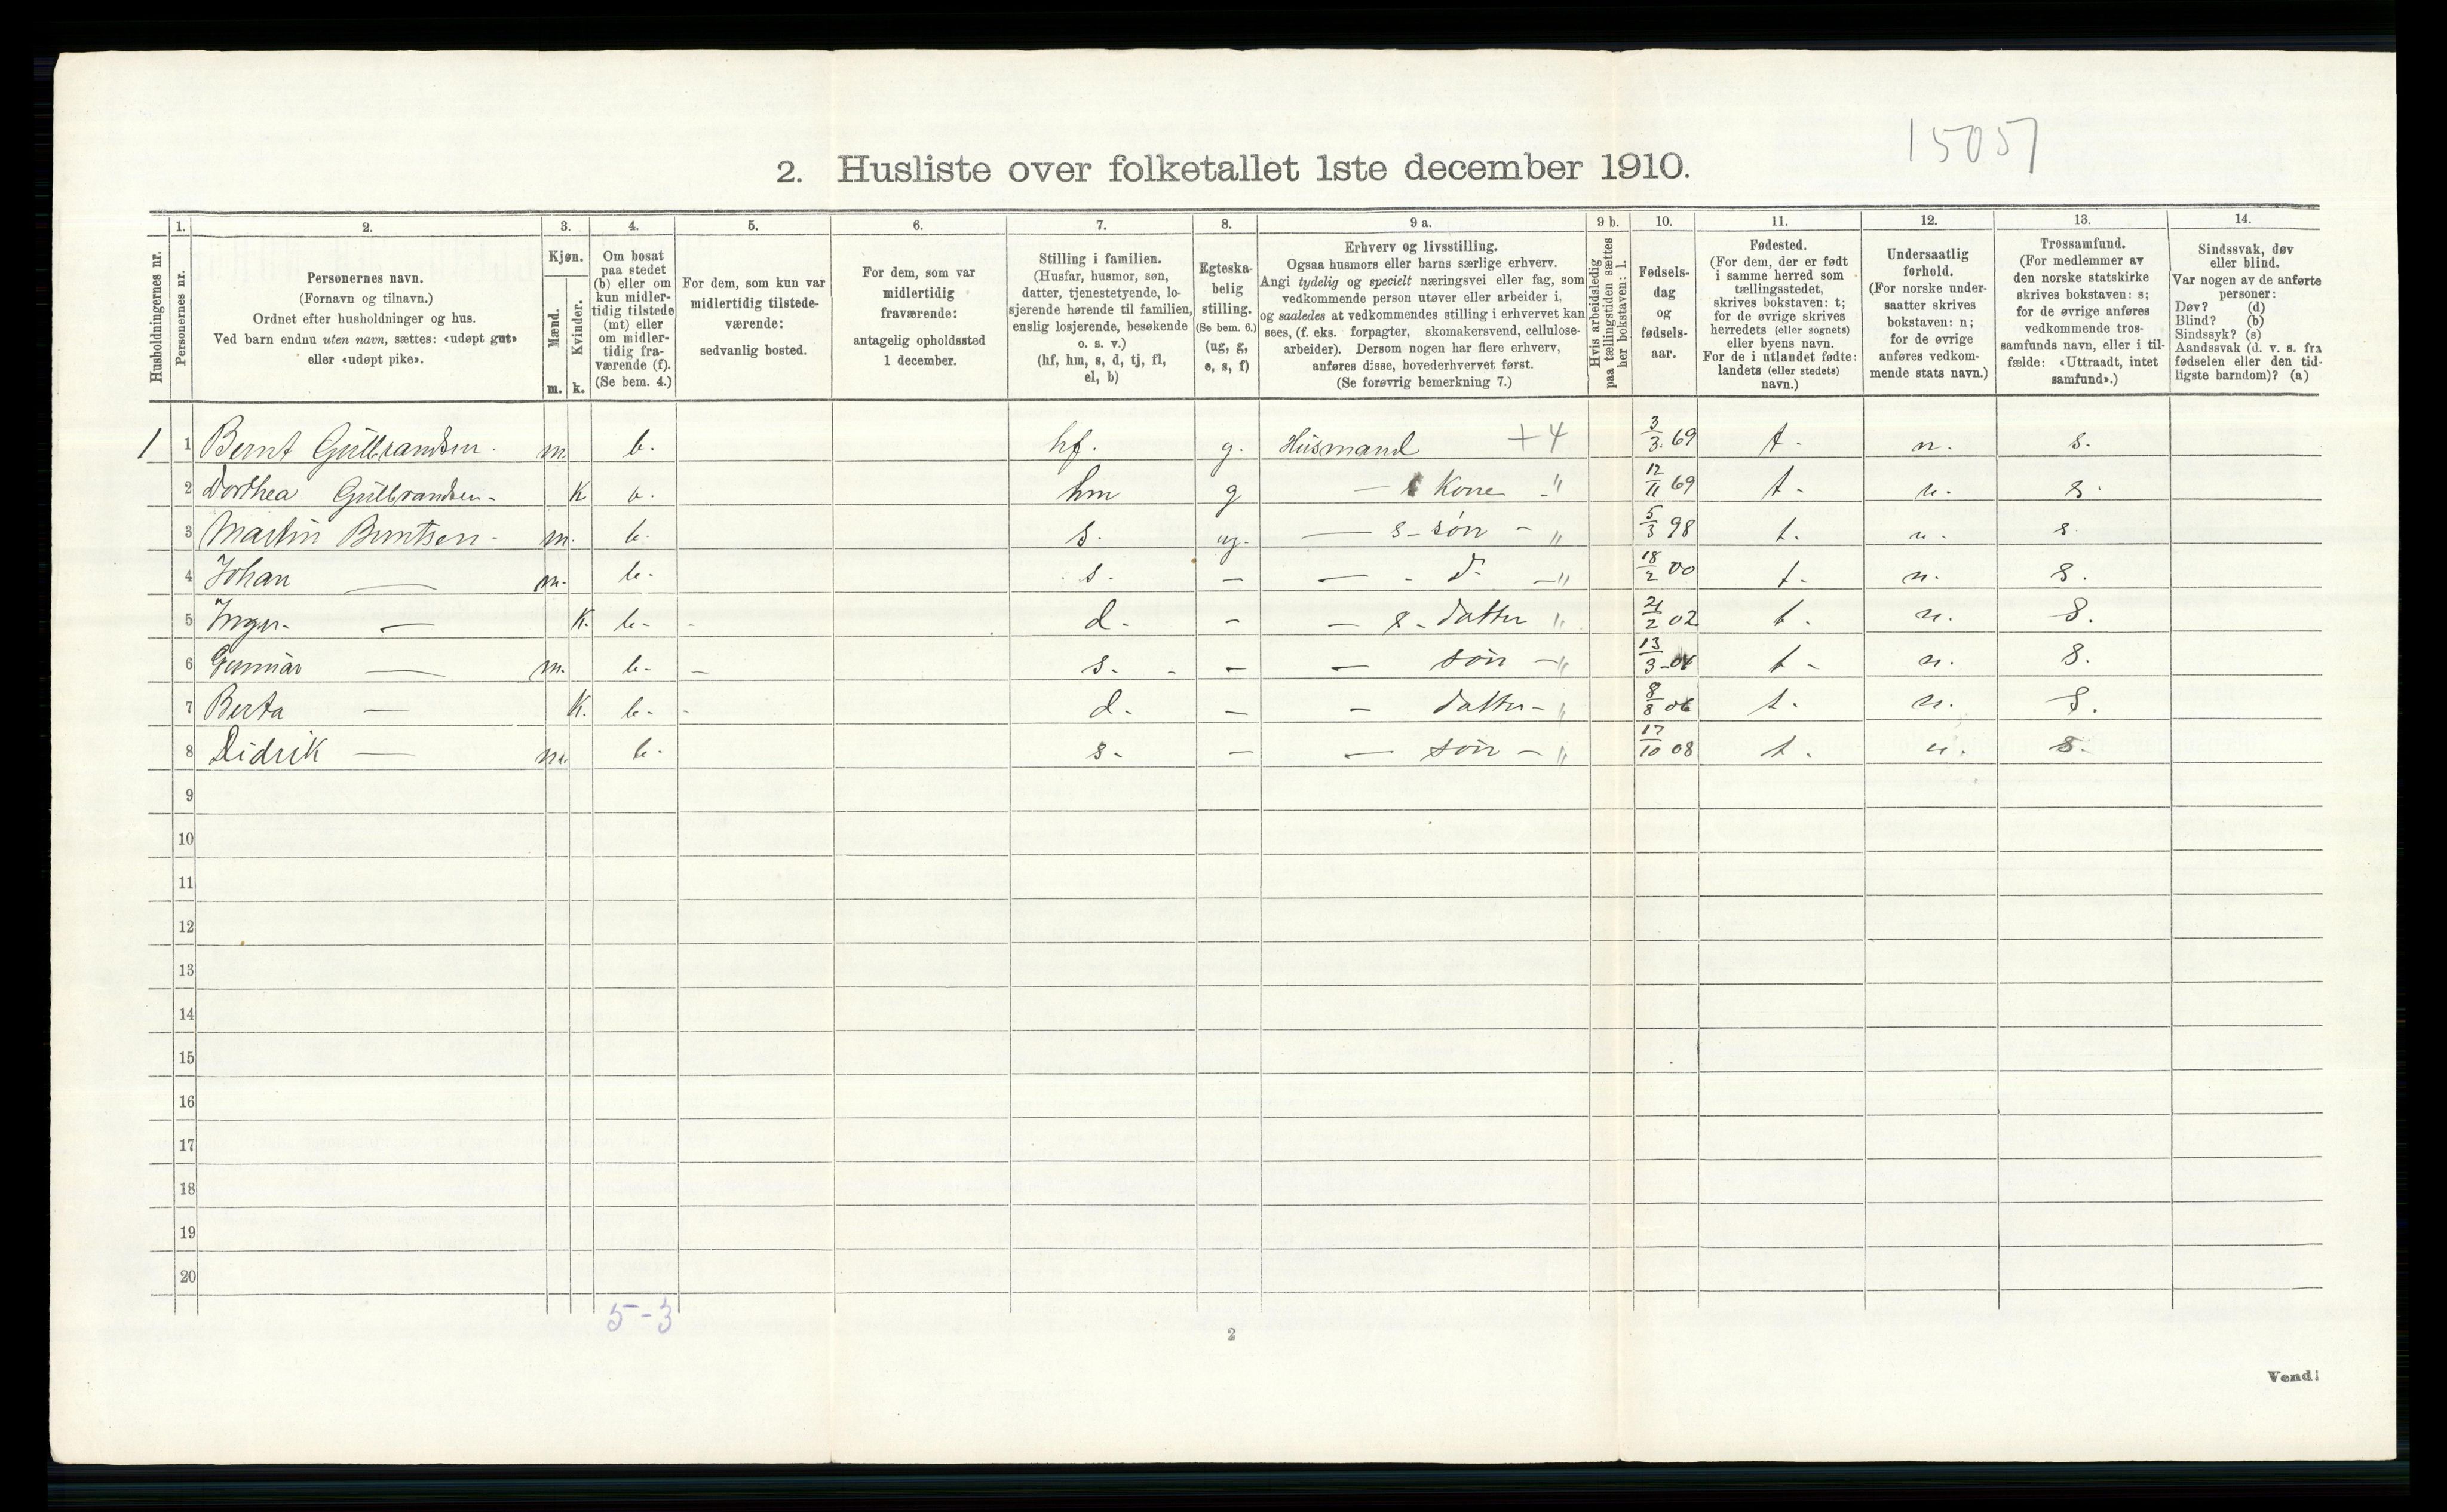 15057
2. Husliste over folketallet 1ste december 1910.
1. 2. 3. 4. 5. 6. 7. 8. 9 a. 9 b. 10. 11. 12. 13. 14.
Husholdningernes nr.
Personernes nr.
Personernes navn.
(Fornavn og tilnavn.)
Ordnet efter husholdninger og hus.
Ved barn endnu uten navn, sættes: «udøpt gut»
eller «udøpt pike».
Kjøn.
Mænd.
Kvinder.
m. k.
Om bosat
paa stedet
(b) eller om
kun midler-
tidig tilstede
(mt) eller
om midler-
tidig fra-
værende (f).
(Se bem. 4.)
For dem, som kun var
midlertidig tilstede-
værende:
sedvanlig bosted.
For dem, som var
midlertidig
fraværende:
antagelig opholdssted
1 december.
Stilling i familien.
(Husfar, husmor, søn,
datter, tjenestetyende, lo-
sjerende hørende til familien,
enslig losjerende, besøkende
o. s. v.)
(hf, hm, s, d, tj, fl,
el, b)
Egteska-
belig
stilling.
(Se bem. 6.)
(ug, g,
e, s, f)
Erhverv og livsstilling.
Ogsaa husmors eller barns særlige erhverv.
Angi tydelig og specielt næringsvei eller fag, som
vedkommende person utøver eller arbeider i,
og saaledes at vedkommendes stilling i erhvervet kan
sees, (f. eks. forpagter, skomakersvend, cellulose-
arbeider). Dersom nogen har flere erhverv,
anføres disse, hovederhvervet først.
(Se forøvrig bemerkning 7.)
Hvis arbeidsledig
paa tællingstiden sættes
her bokstaven: l.
Fødsels-
dag
og
fødsels-
aar.
Fødested.
(For dem, der er født
i samme herred som
tællingsstedet,
skrives bokstaven: t;
for de øvrige skrives
herredets (eller sognets)
eller byens navn.
For de i utlandet fødte:
landets (eller stedets)
navn.)
Undersaatlig
forhold.
(For norske under-
saatter skrives
bokstaven: n;
for de øvrige
anføres vedkom-
mende stats navn.)
Trossamfund.
(For medlemmer av
den norske statskirke
skrives bokstaven: s;
for de øvrige anføres
vedkommende tros-
samfunds navn, eller i til-
fælde: «Uttraadt, intet
samfund».)
Sindssvak, døv
eller blind.
Var nogen av de anførte
personer:
Døv? (d)
Blind? (b)
Sindssyk? (s)
Aandssvak (d. v. s. fra
fødselen eller den tid-
ligste barndom)? (a)
1 1 Bernt Gülbrandsen. m. b. hf. g. Husmand +4 3/3. 69 t. n. s.
2 Dorthea Gülbrandsen- K b. hm g — Kone -" 12/11 69 t- n. s.
3 Martin Berntsen- m. b. s. ug. — s-søn - " 5/3 98 t. n. s.
4 Johan — m. b. s. — — - d. —" 18/2 00 t- n. s.
5 Inger- — K. b. - d. - — s- datter " 21/2 02 t. n. s.
6 Gunnar — m. b- — s. - - — søn —" 13/3-04 t- n. s.
7 Berta — K. b- - d- — — datter- " 8/8 06 t. n. s.
8 Didrik — m. b- s- — — søn —" 17/10 08 t. n. s.
9
10
11
12
13
14
15
16
17
18
19
20
5-3
2
Vend!